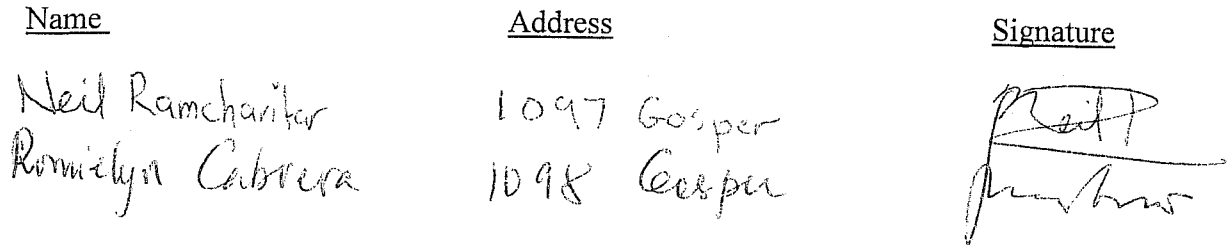 Name Address Signature
Neil Ramcharitar 1097 Gosper Neil
Romielyn Cabrera 1098 Gosper